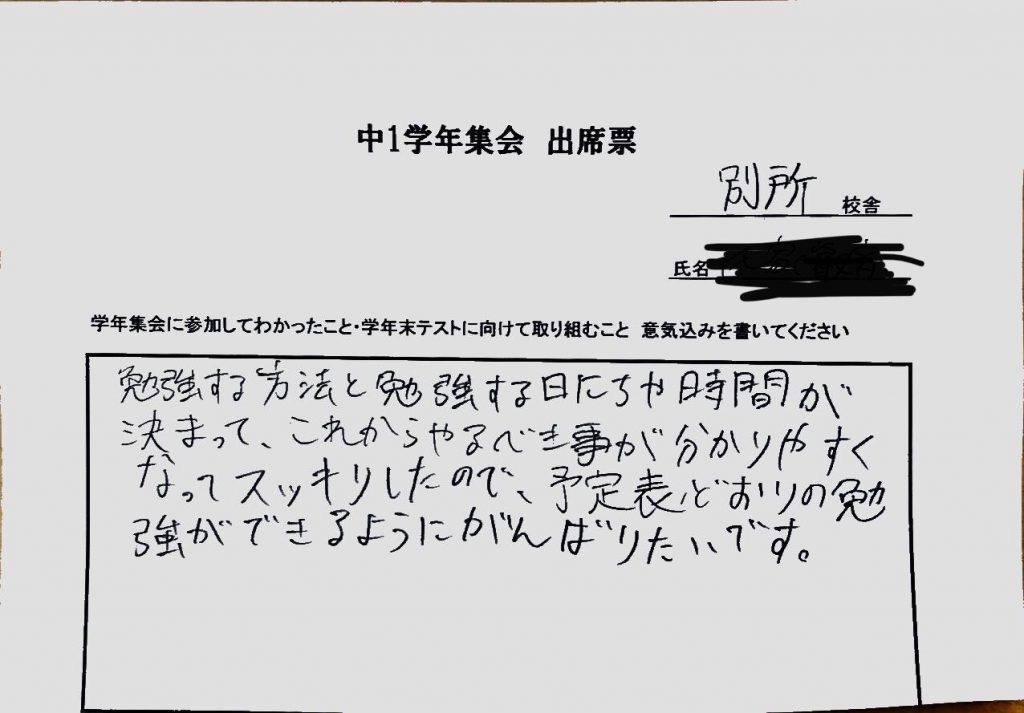 中1学年集会 出席票
別所 校舎
氏名
学年集会に参加してわかったこと・学年末テストに向けて取り組むこと 意気込みを書いてください
勉強する方法と勉強する日にちや時間が
決まって、これからやるべき事が分かりやすく
なってスッキリしたので、予定表どおりの勉
強ができるようにがんばりたいです。